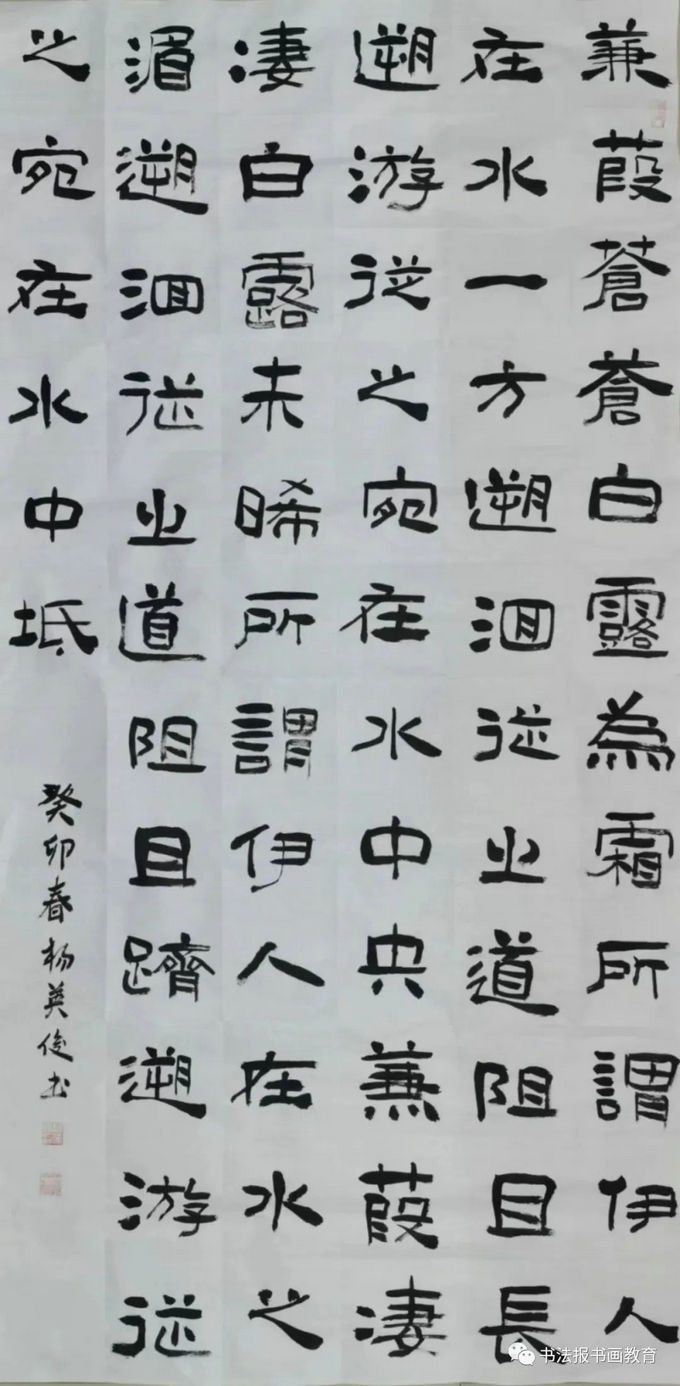 兼葭蒼蒼白露為霜所謂伊人
在水一方遡洄從之道阻且長
遡游從之宛在水中央兼葭淒
淒白露未晞所謂伊人在水之
湄遡洄從之道阻且躋遡游從
之宛在水中坻
癸卯春杨英俊书
书法报书画教育